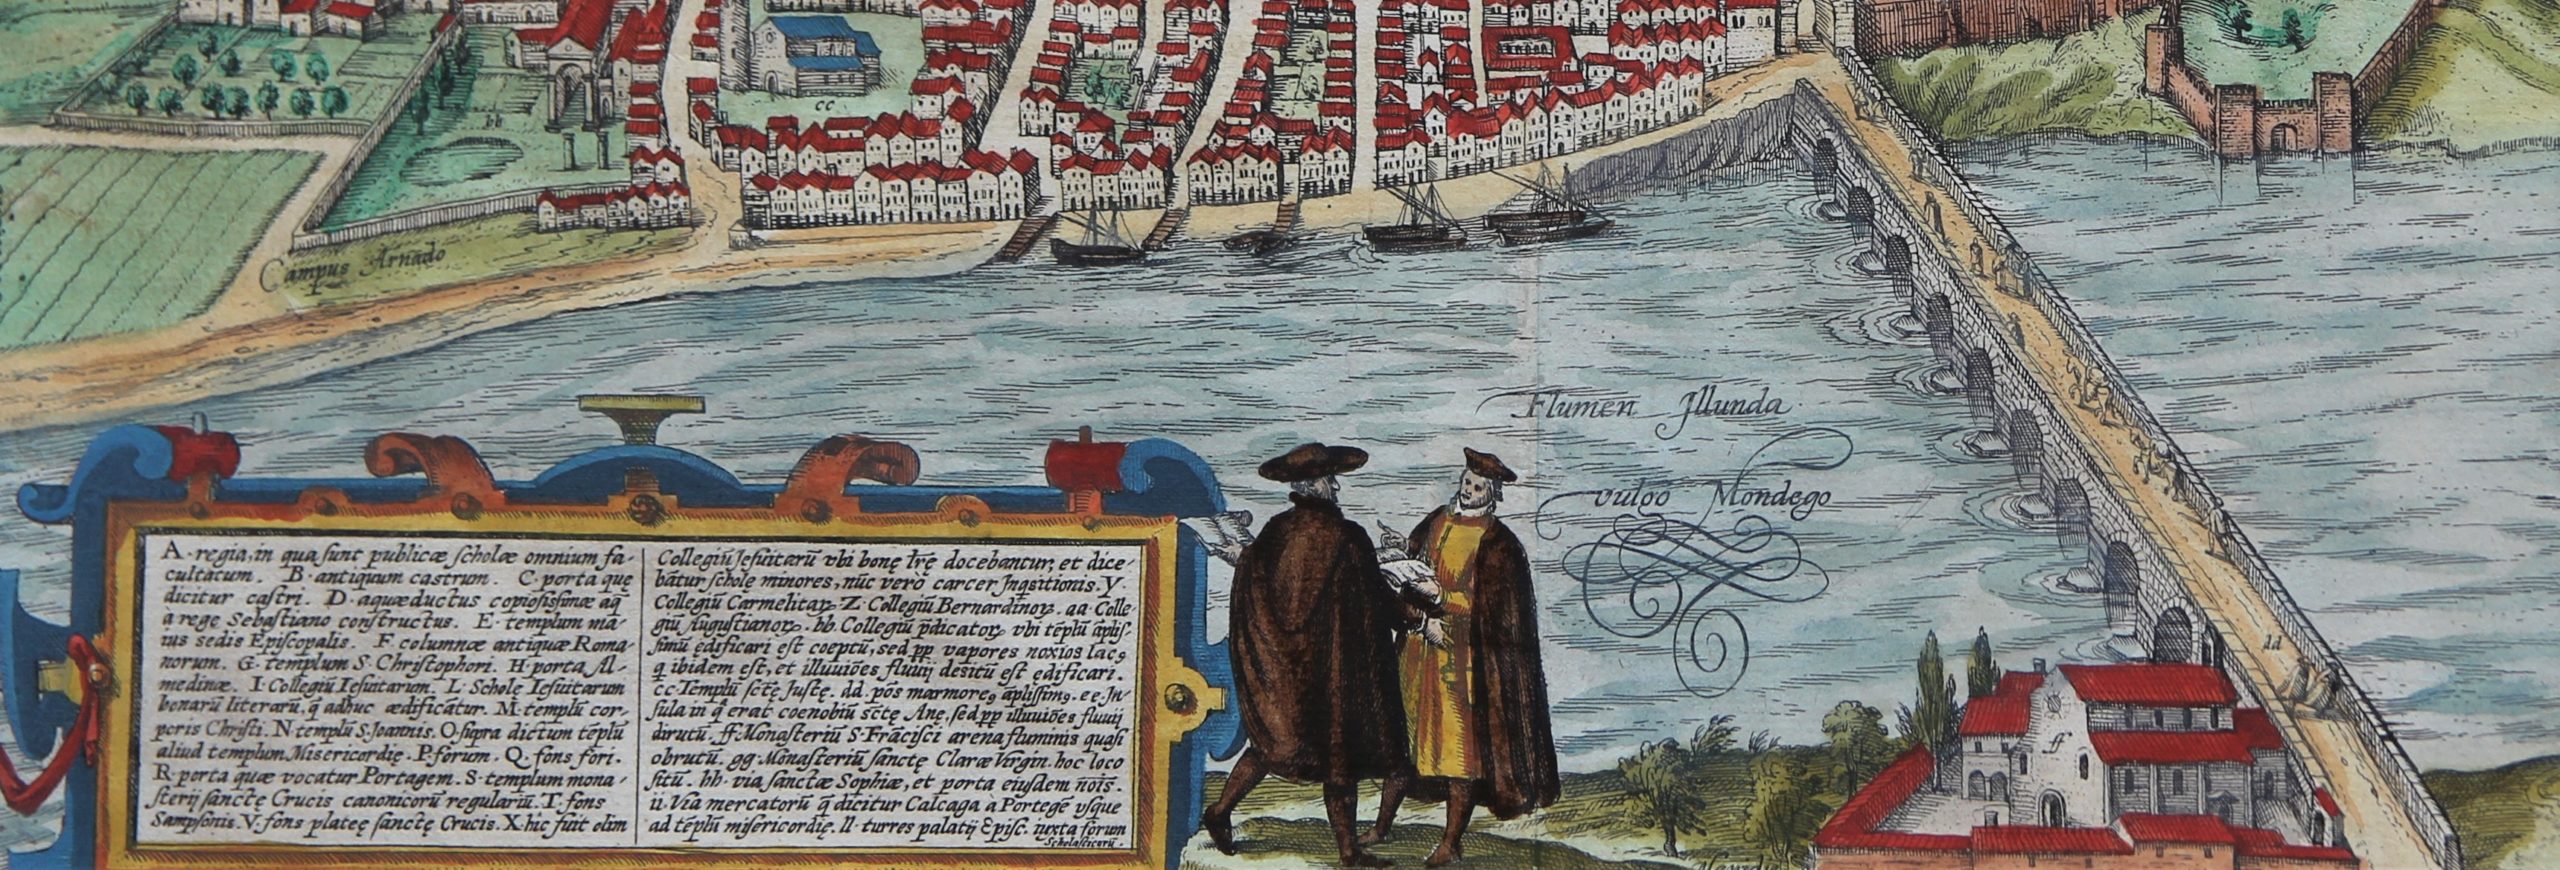 cc
bb
Campus Arnado
Flumen̄ Illunda
vulgo Mondego
dd
ff
A. regia, in qua sunt publicæ scholæ omnium fa-
cultatum. B. antiquum castrum. C. porta quę
dicitur castri. D. aquæductus copiosissimæ aq̄
à rege Sebastiano constructus. E. templum ma-
ius sedis Episcopalis. F. columnæ antiquæ Roma-
norum. G. templum S. Christophori. H. porta Al-
medinæ. I. Collegiū Iesuitarum. L. Scholę Iesuitarum
bonarū literarū, q̄ adhuc ædificātur. M. templū cor-
poris Christi. N. templū S. Joannis. O. supra dictum tēplū
aliud templum Misericordię. P. forum. Q. fons fori.
R. porta quæ vocatur Portagem. S. templum mona-
sterij sanctę Crucis canonicorū regulariū. T. fons
Sampsonis. V. fons plateę sanctę Crucis. X. hic fuit olim
Collegiū Jesuitarū vbi bonę lr̄ę docebantur, et dice-
bātur scholę minores, nūc vero carcer Inqsitionis. Y
Collegiū Carmelitaꝝ. Z. Collegiū Bernardinoꝝ. aa. Colle-
giū Augustianoꝝ. bb. Collegiū p̄dicatoꝝ vbi tēplū āplis-
simū ędificari est coeptū, sed pp vapores noxios lacꝰ
q ibidem est, et illuuiōes fluuij desitū est ędificari.
cc. Templū sctę Justę. dd. pōs marmoreꝰ āplissimꝰ. ee. In-
sula in q̄ erat coenobiū sctę Anę, sed pp illuuiōes fluuij
dirutū. ff. Monasteriū S. Frācisci arena fluminis quasi
obrutū. gg. Monasteriū sanctę Claræ Virgin. hoc loco
sitū. hh. via sanctæ Sophiæ, et porta eiusdem nōīs.
ii. Via mercatorū q̄ dicitur Calcaga a Portegē vsque
ad tēplū misericordię. ll. turres palatij Episc. iuxta forum
Scholasticorū.